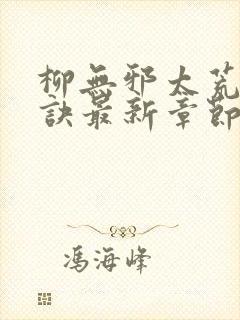 柳無邪太荒
訣最新章節
馮海峰